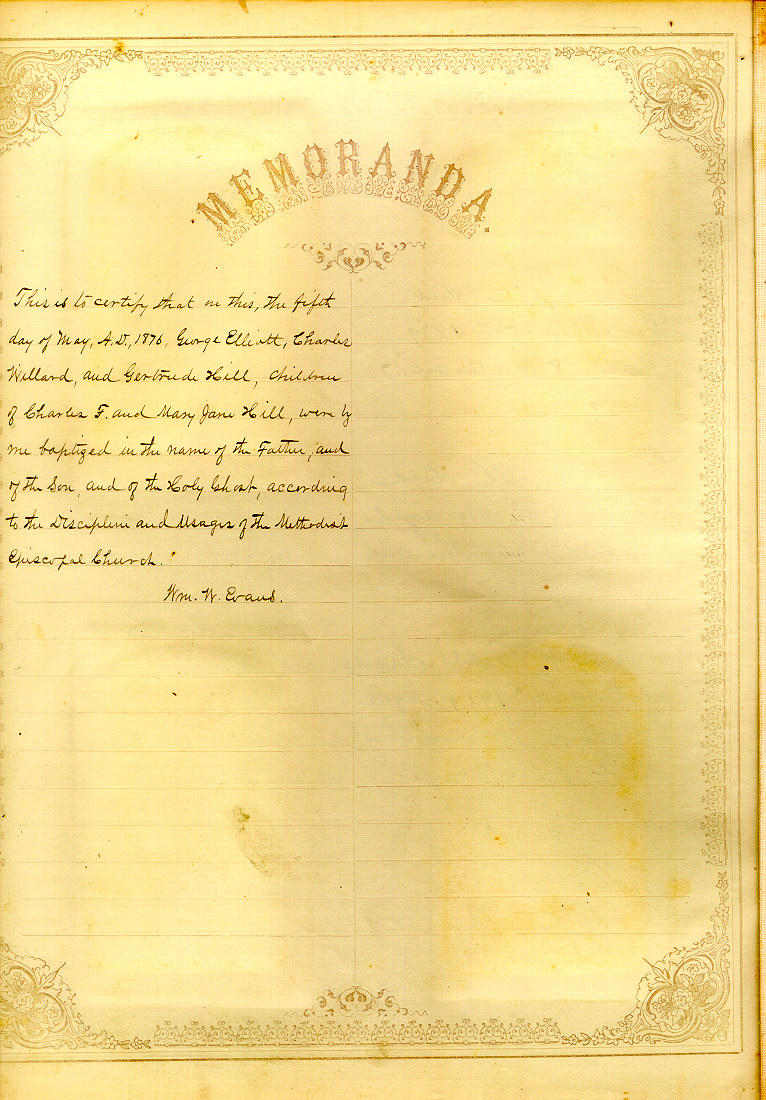 MEMORANDA.
This is to certify that on this, the fifth
day of May, A.D., 1876, George Elliott, Charles
Willard, and Gertrude Hill, children
of Charles F. and Mary Jane Hill, were by
me baptized in the name of the Father, and
of the Son, and of the Holy Ghost, according
to the Discipline and Usages of the Methodist
Episcopal Church.
Wm. W. Evans.